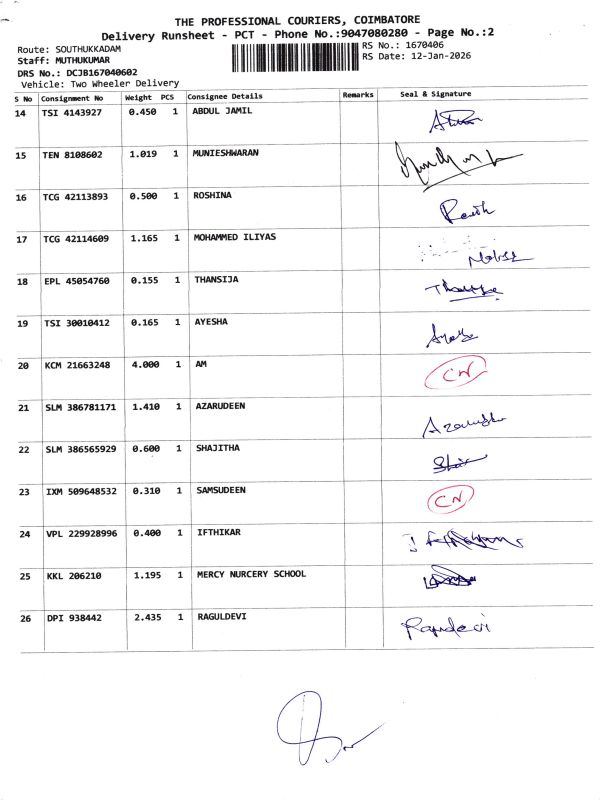 THE PROFESSIONAL COURIERS, COIMBATORE
Delivery Runsheet - PCT - Phone No.:9047080280 - Page No.:2
Route: SOUTHUKKADAM RS No.: 1670406
Staff: MUTHUKUMAR RS Date: 12-Jan-2026
DRS No.: DCJB167040602
Vehicle: Two Wheeler Delivery
S No Consignment No Weight PCS Consignee Details Remarks Seal & Signature
14 TSI 4143927 0.450 1 ABDUL JAMIL
15 TEN 8108602 1.019 1 MUNIESHWARAN
16 TCG 42113893 0.500 1 ROSHINA
17 TCG 42114609 1.165 1 MOHAMMED ILIYAS
18 EPL 45054760 0.155 1 THANSIJA
19 TSI 30010412 0.165 1 AYESHA
20 KCM 21663248 4.000 1 AM CN
21 SLM 386781171 1.410 1 AZARUDEEN
22 SLM 386565929 0.600 1 SHAJITHA
23 IXM 509648532 0.310 1 SAMSUDEEN CN
24 VPL 229928996 0.400 1 IFTHIKAR
25 KKL 206210 1.195 1 MERCY NURCERY SCHOOL
26 DPI 938442 2.435 1 RAGULDEVI